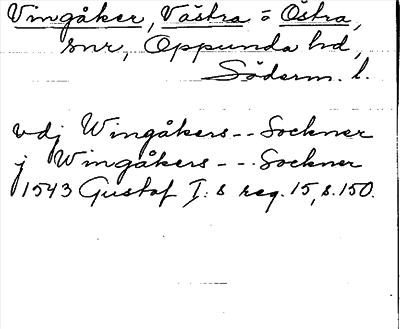 Vingåker, Västra o Östra,
snr, Oppunda hd,
Söderm. l.
vdj Wingåkers - - Sockner
j Wingåkers - - Sockner
1543 Gustaf I:s reg. 15, s. 150.